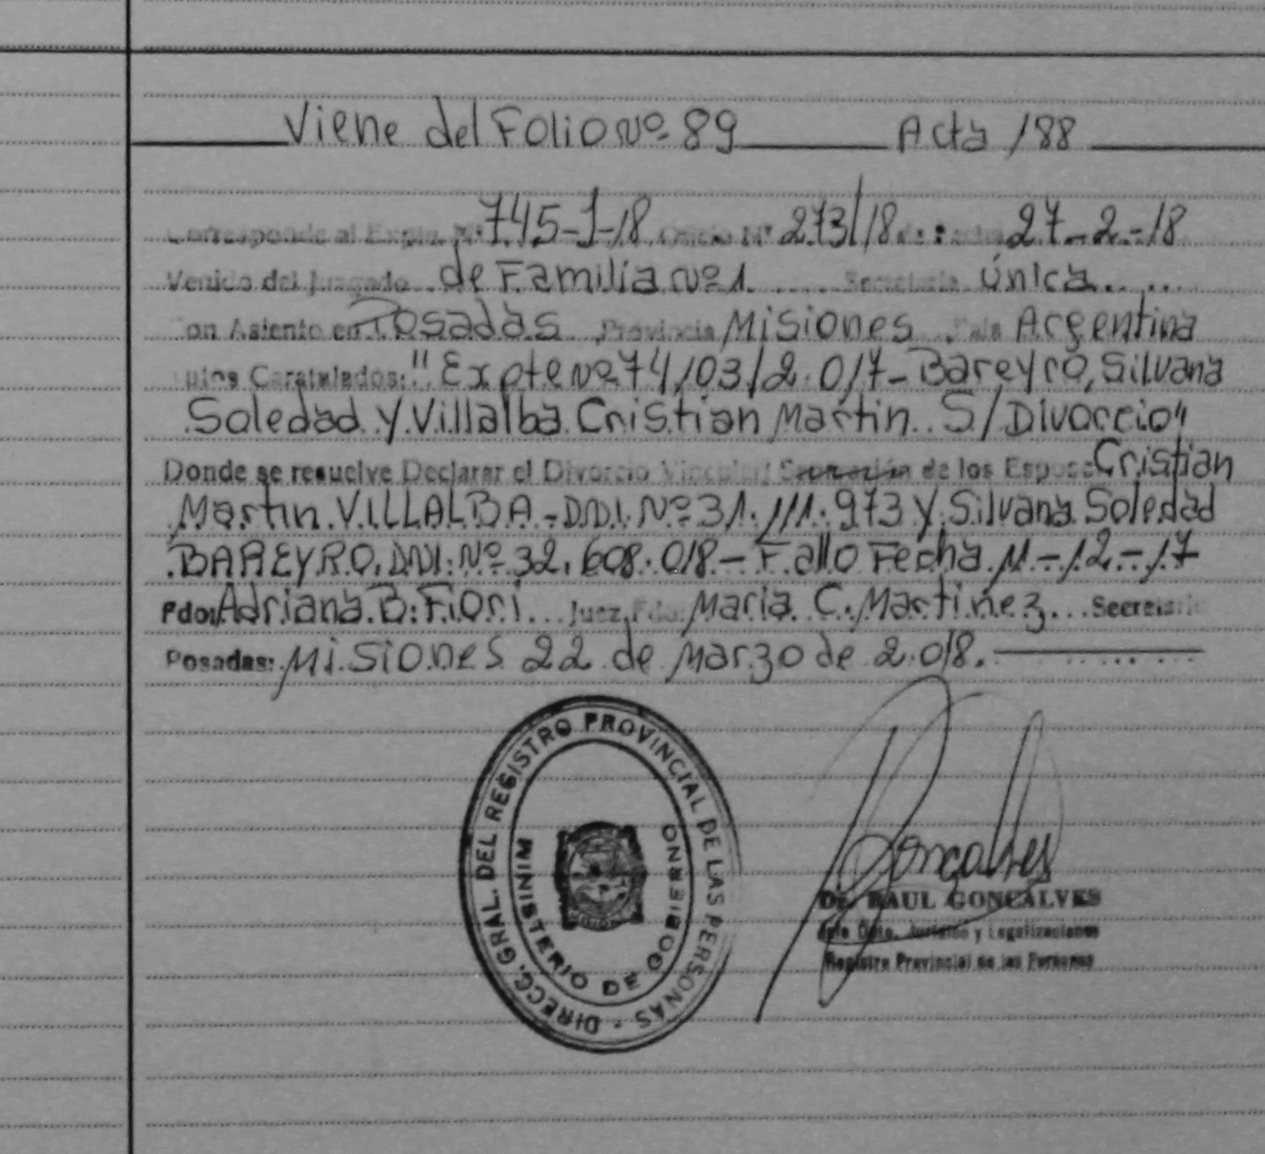 Viene del Folio Nº 89 Acta /88
Corresponde al Expte. Nº 745-J-18 Oficio Nº 273/18 de fecha 27-2-18
Venido del Juzgado de Familia Nº 1 Secretaría única
on Asiento en Posadas Provincia Misiones País Argentina
utos Caratulados: "Expte Nº 74/03/2.017- Bareyro, Silvana
Soledad y Villalba Cristian Martin S/Divorcio"
Donde se resuelve Declarar el Divorcio Vincular/ Separación de los Esposos Cristian
Martin VILLALBA - DNI. Nº 31.111.973 y Silvana Soledad
BAREYRO. DNI. Nº 32.608.018 - Fallo Fecha 11-12-17
Fdo: Adriana B. Fiori Juez, Fdo: Maria C. Martinez Secretaria
Posadas: Misiones 22 de Marzo de 2.018.
DIRECC. GRAL. DEL REGISTRO PROVINCIAL DE LAS PERSONAS
MINISTERIO DE GOBIERNO
Gonçalves
Dr. RAUL GONCALVES
Jefe Dpto. Jurídico y Legalizaciones
Registro Provincial de las Personas